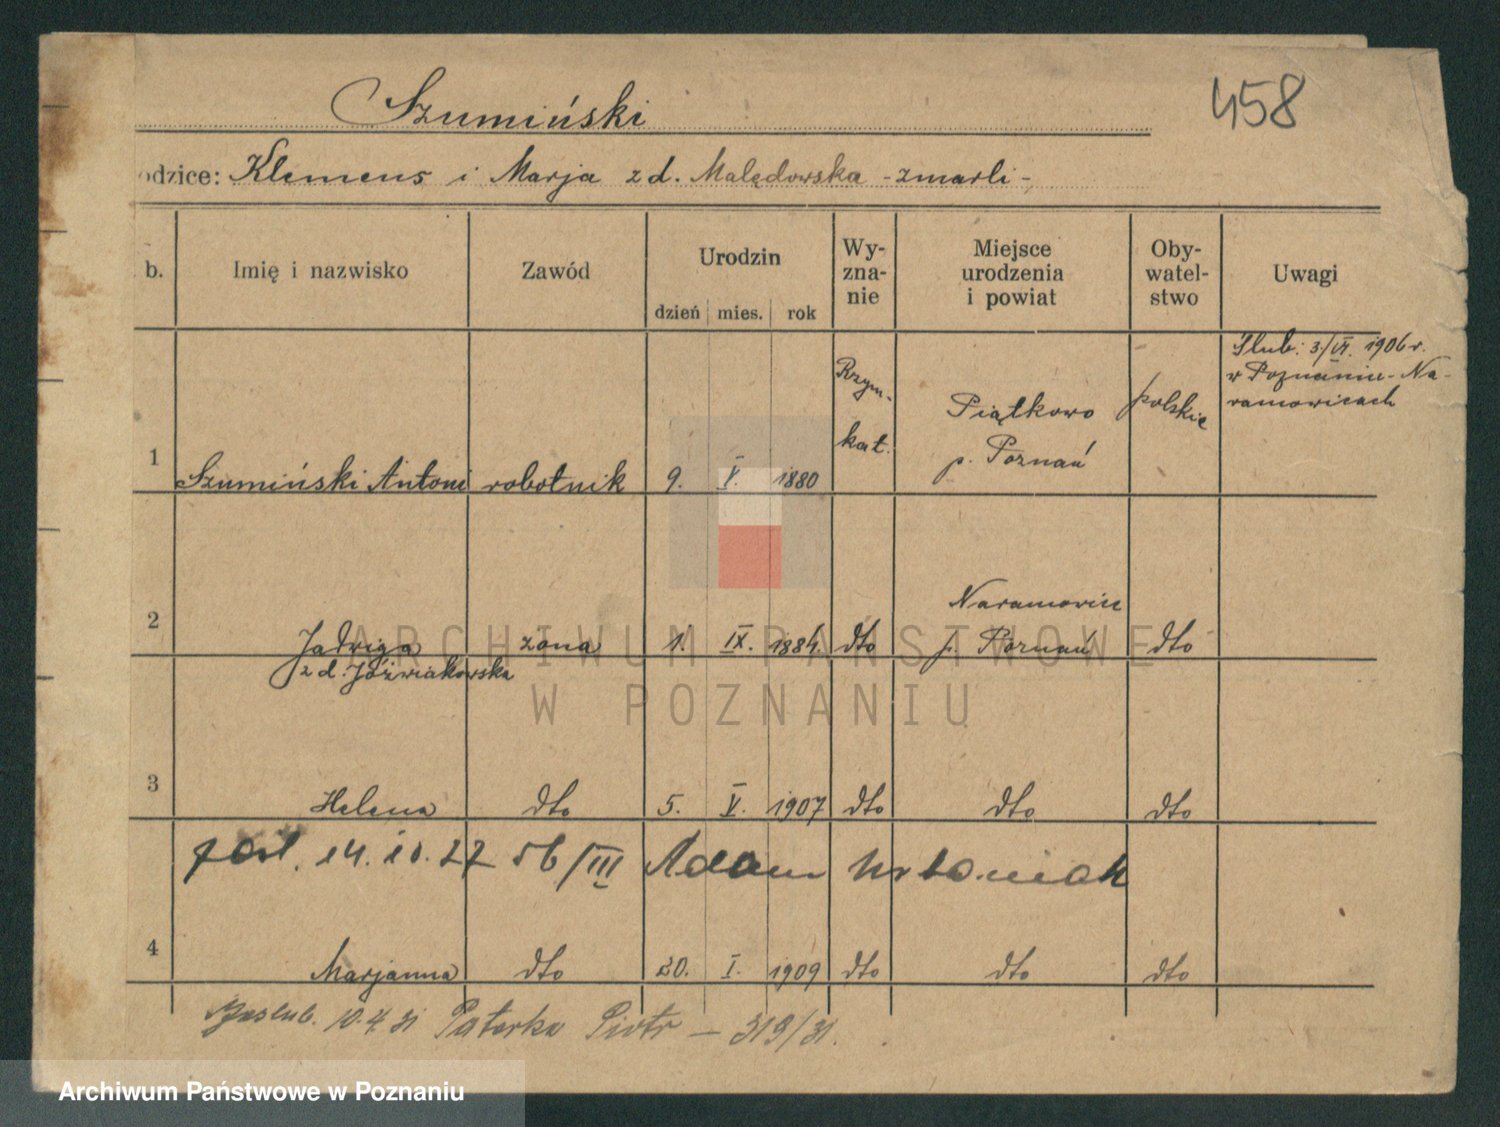 458
Szumiński
odzice: Klemens i Marja z d. Malędowska - zmarli -
b. Imię i nazwisko Zawód Urodzin dzień mies. rok Wy-zna-nie Miejsce urodzenia i powiat Oby-watel-stwo Uwagi
1 Szumiński Antoni robotnik 9. V. 1880 Rzym.-kat. Piątkowo p. Poznań polskie Ślub: 3/VI. 1906 r. w Poznaniu-Na-ramowicach
2 Jadwiga z d. Jóźwiakowska żona 1. IX. 1884. dto Naramowice p. Poznań dto
3 Helena dto 5. V. 1907 dto dto dto
14.10.27 56/III Adam Urbaniak
4 Marjanna dto 20. I. 1909 dto dto dto
Zaślub. 10.4.31 Paterka Piotr - 319/31.
ARCHIWUM PAŃSTWOWE
W POZNANIU
Archiwum Państwowe w Poznaniu